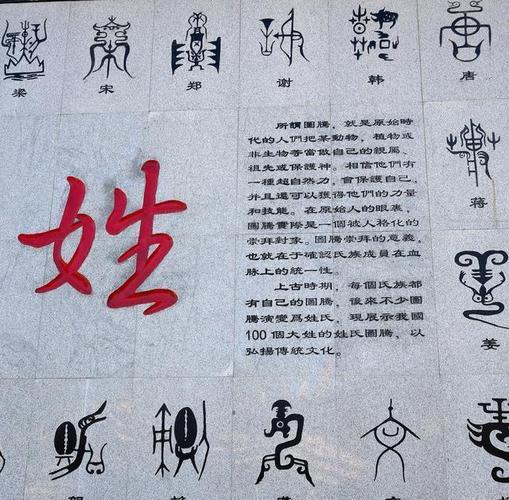 梁 宋 郑 谢 韩 唐
蒋
姜
姓
所謂圖騰，就是原始時
代的人們把某動物，植物或
非生物等當做自己的親屬，
祖先或保護神。相信他們有
一種超自然力，會保護自己，
并且還可以獲得他們的力量
和技能。在原始人的眼裹，
圖騰實際是一個被人格化的
崇拜對象。圖騰崇拜的意義，
也就在于確認氏族成員在血
脉上的統一性。
上古時期，每個氏族都
有自己的圖騰，後來不少圖
騰演變爲姓氏，現展示我國
100個大姓的姓氏圖騰，以
弘揚傳統文化。